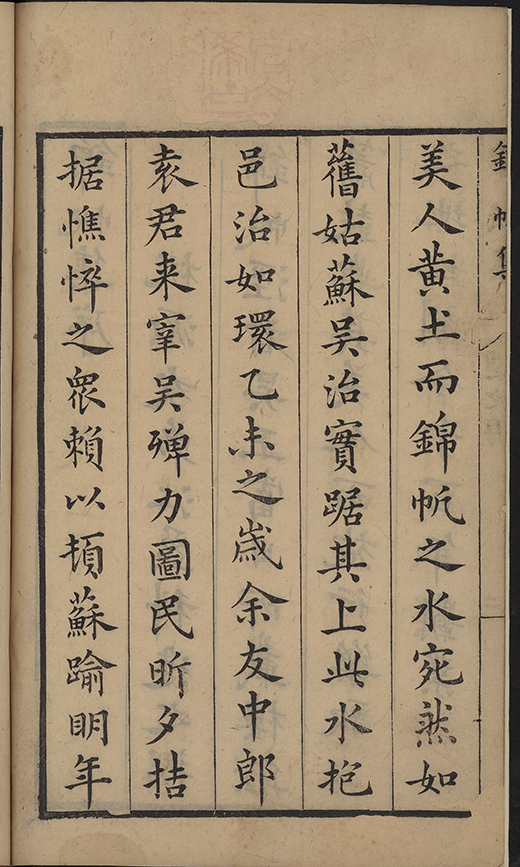 錦帆集
美人黄土而錦帆之水宛然如
舊姑蘇吴治實踞其上此水抱
邑治如環乙未之歲余友中郎
袁君来宰吴殫力圖民昕夕拮
据憔悴之衆賴以頓蘇踰明年